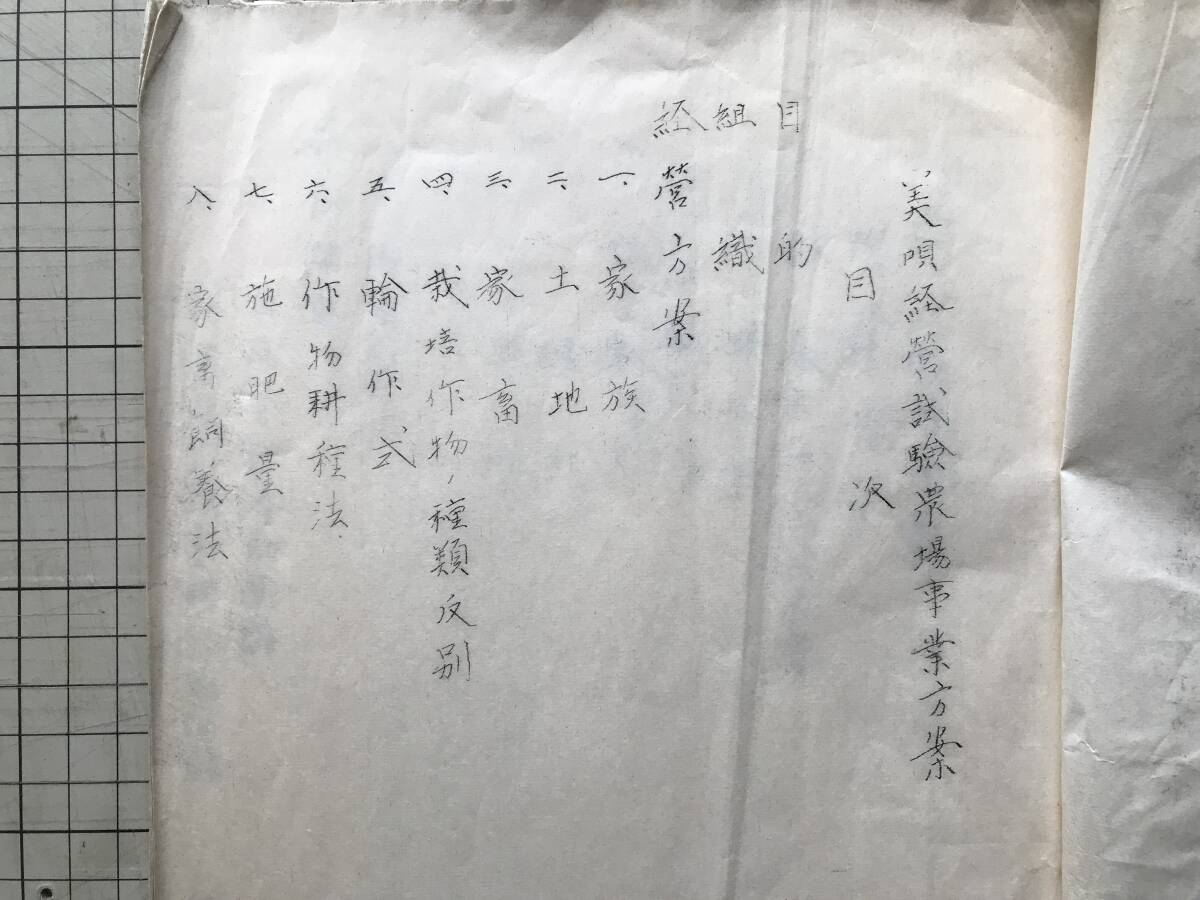 美唄経営試験農場事業方案
目次
目的
組織
経営方案
一、家族
二、土地
三、家畜
四、栽培作物ノ種類反別
五、輪作式
六、作物耕種法
七、施肥量
八、家畜飼養法